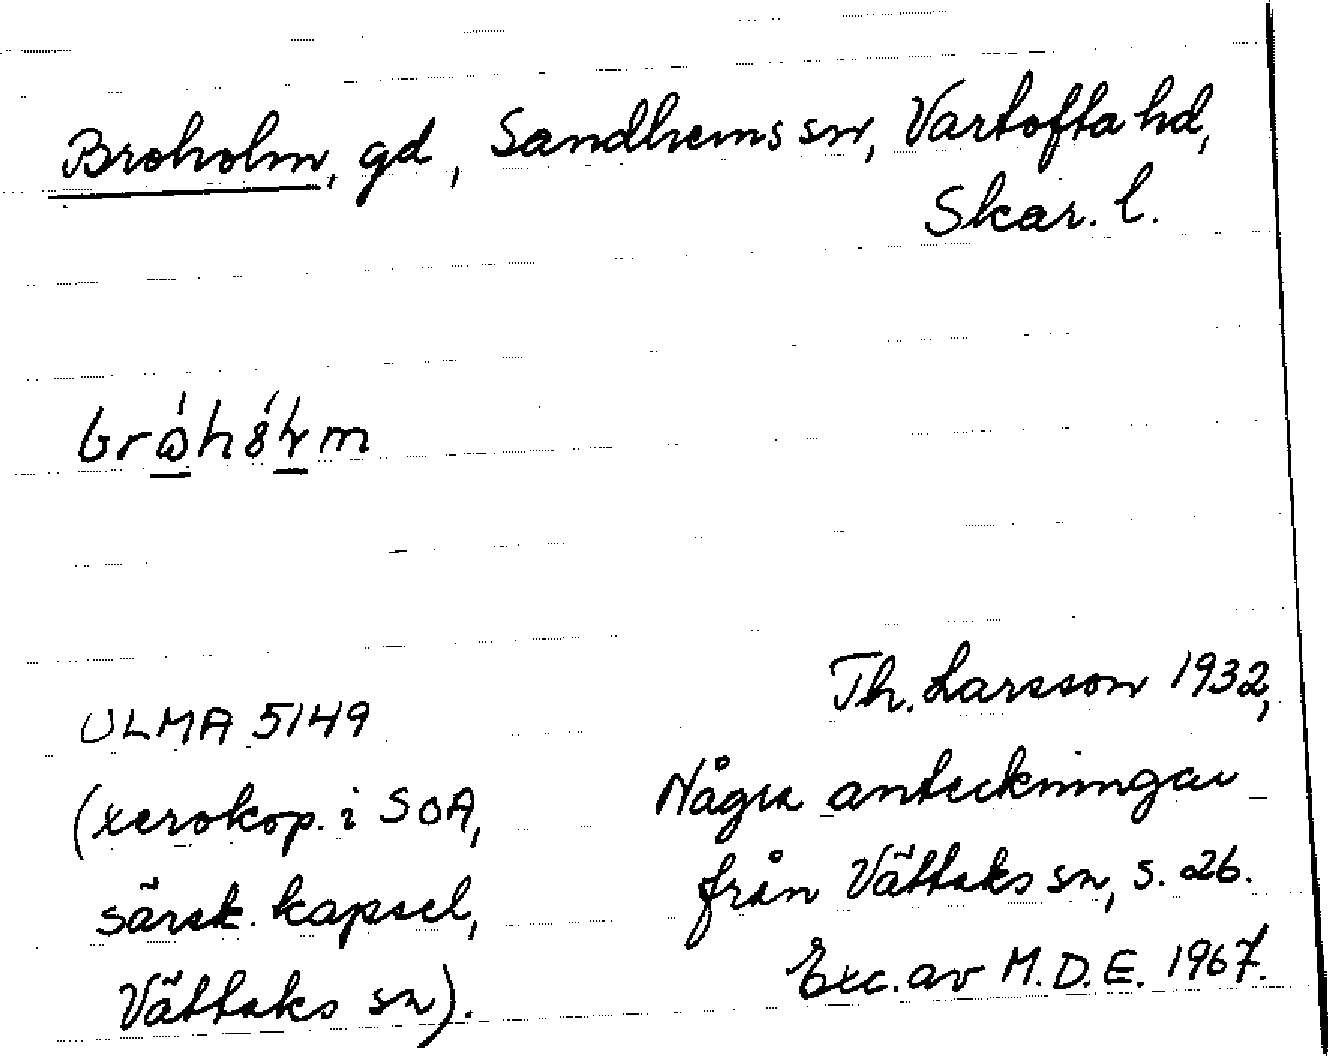 Broholm, gd, Sandhems sn, Vartofta hd,
Skar. l.
ULMA 5149
(xerokop. i SOA,
särsk. kapsel,
Vättaks sn).
Th. Larsson 1932,
Några anteckningar
från Vättaks sn, s. 26.
Exc. av M.D.E. 1967.